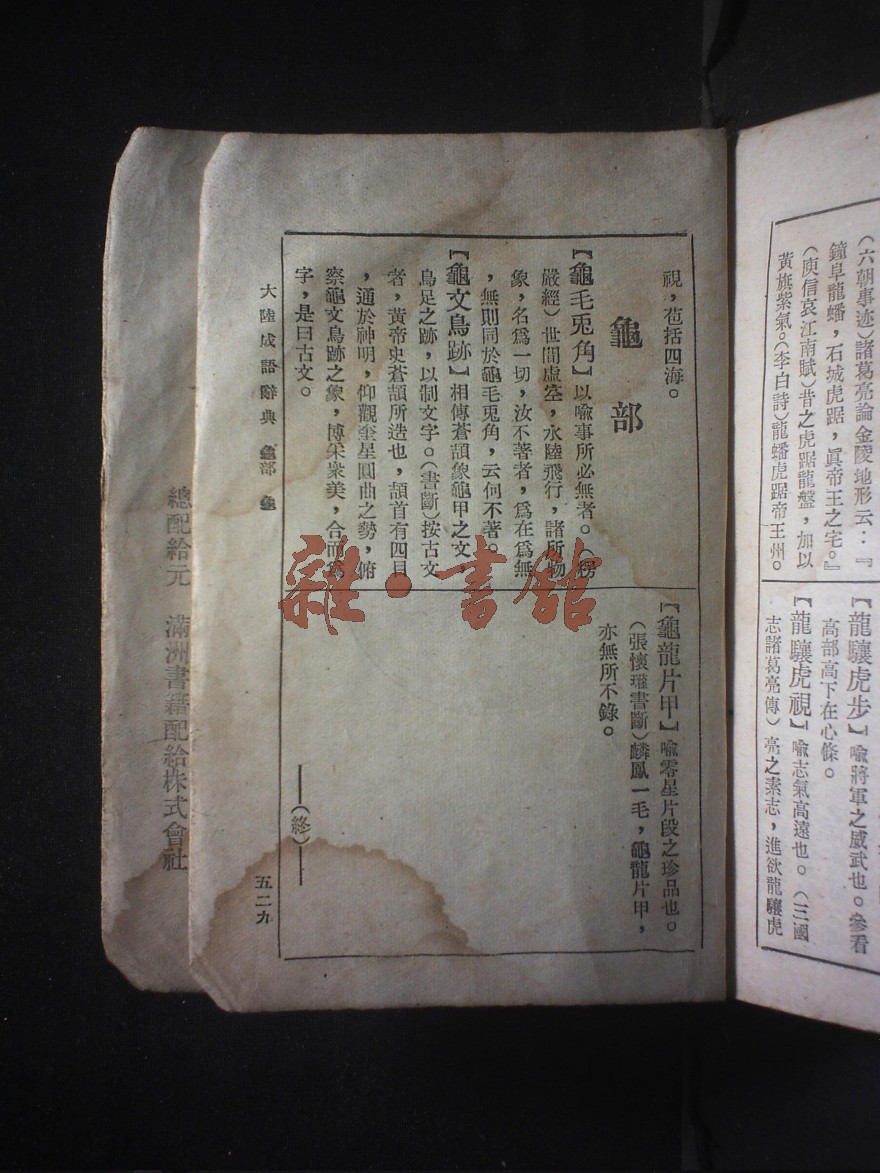 (六朝事迹)諸葛亮論金陵地形云：『
鐘阜龍蟠，石城虎踞，眞帝王之宅。』
(庾信哀江南賦)昔之虎踞龍盤，加以
黃旗紫氣。(李白詩)龍蟠虎踞帝王州。
【龍驤虎步】喩將軍之威武也。參看
高部高下在心條。
【龍驤虎視】喩志氣高遠也。(三國
志諸葛亮傳)亮之素志，進欲龍驤虎
視，苞括四海。
龜部
【龜毛兎角】以喩事所必無者。(楞
嚴經)世間虛空，水陸飛行，諸所物
象，名爲一切，汝不著者，爲在爲無
，無則同於龜毛兎角，云何不著。
【龜文鳥跡】相傳蒼頡象龜甲之文，
鳥足之跡，以制文字。(書斷)按古文
者，黃帝史蒼頡所造也，頡首有四目
，通於神明，仰觀奎星圓曲之勢，俯
察龜文鳥跡之象，博采衆美，合而爲
字，是曰古文。
【龜龍片甲】喩零星片段之珍品也。
(張懷瓘書斷)麟鳳一毛，龜龍片甲，
亦無所不錄。
——(終)——
大陸成語辭典 龜部 龜
五二九
總配給元 滿洲書籍配給株式會社
雜·書館